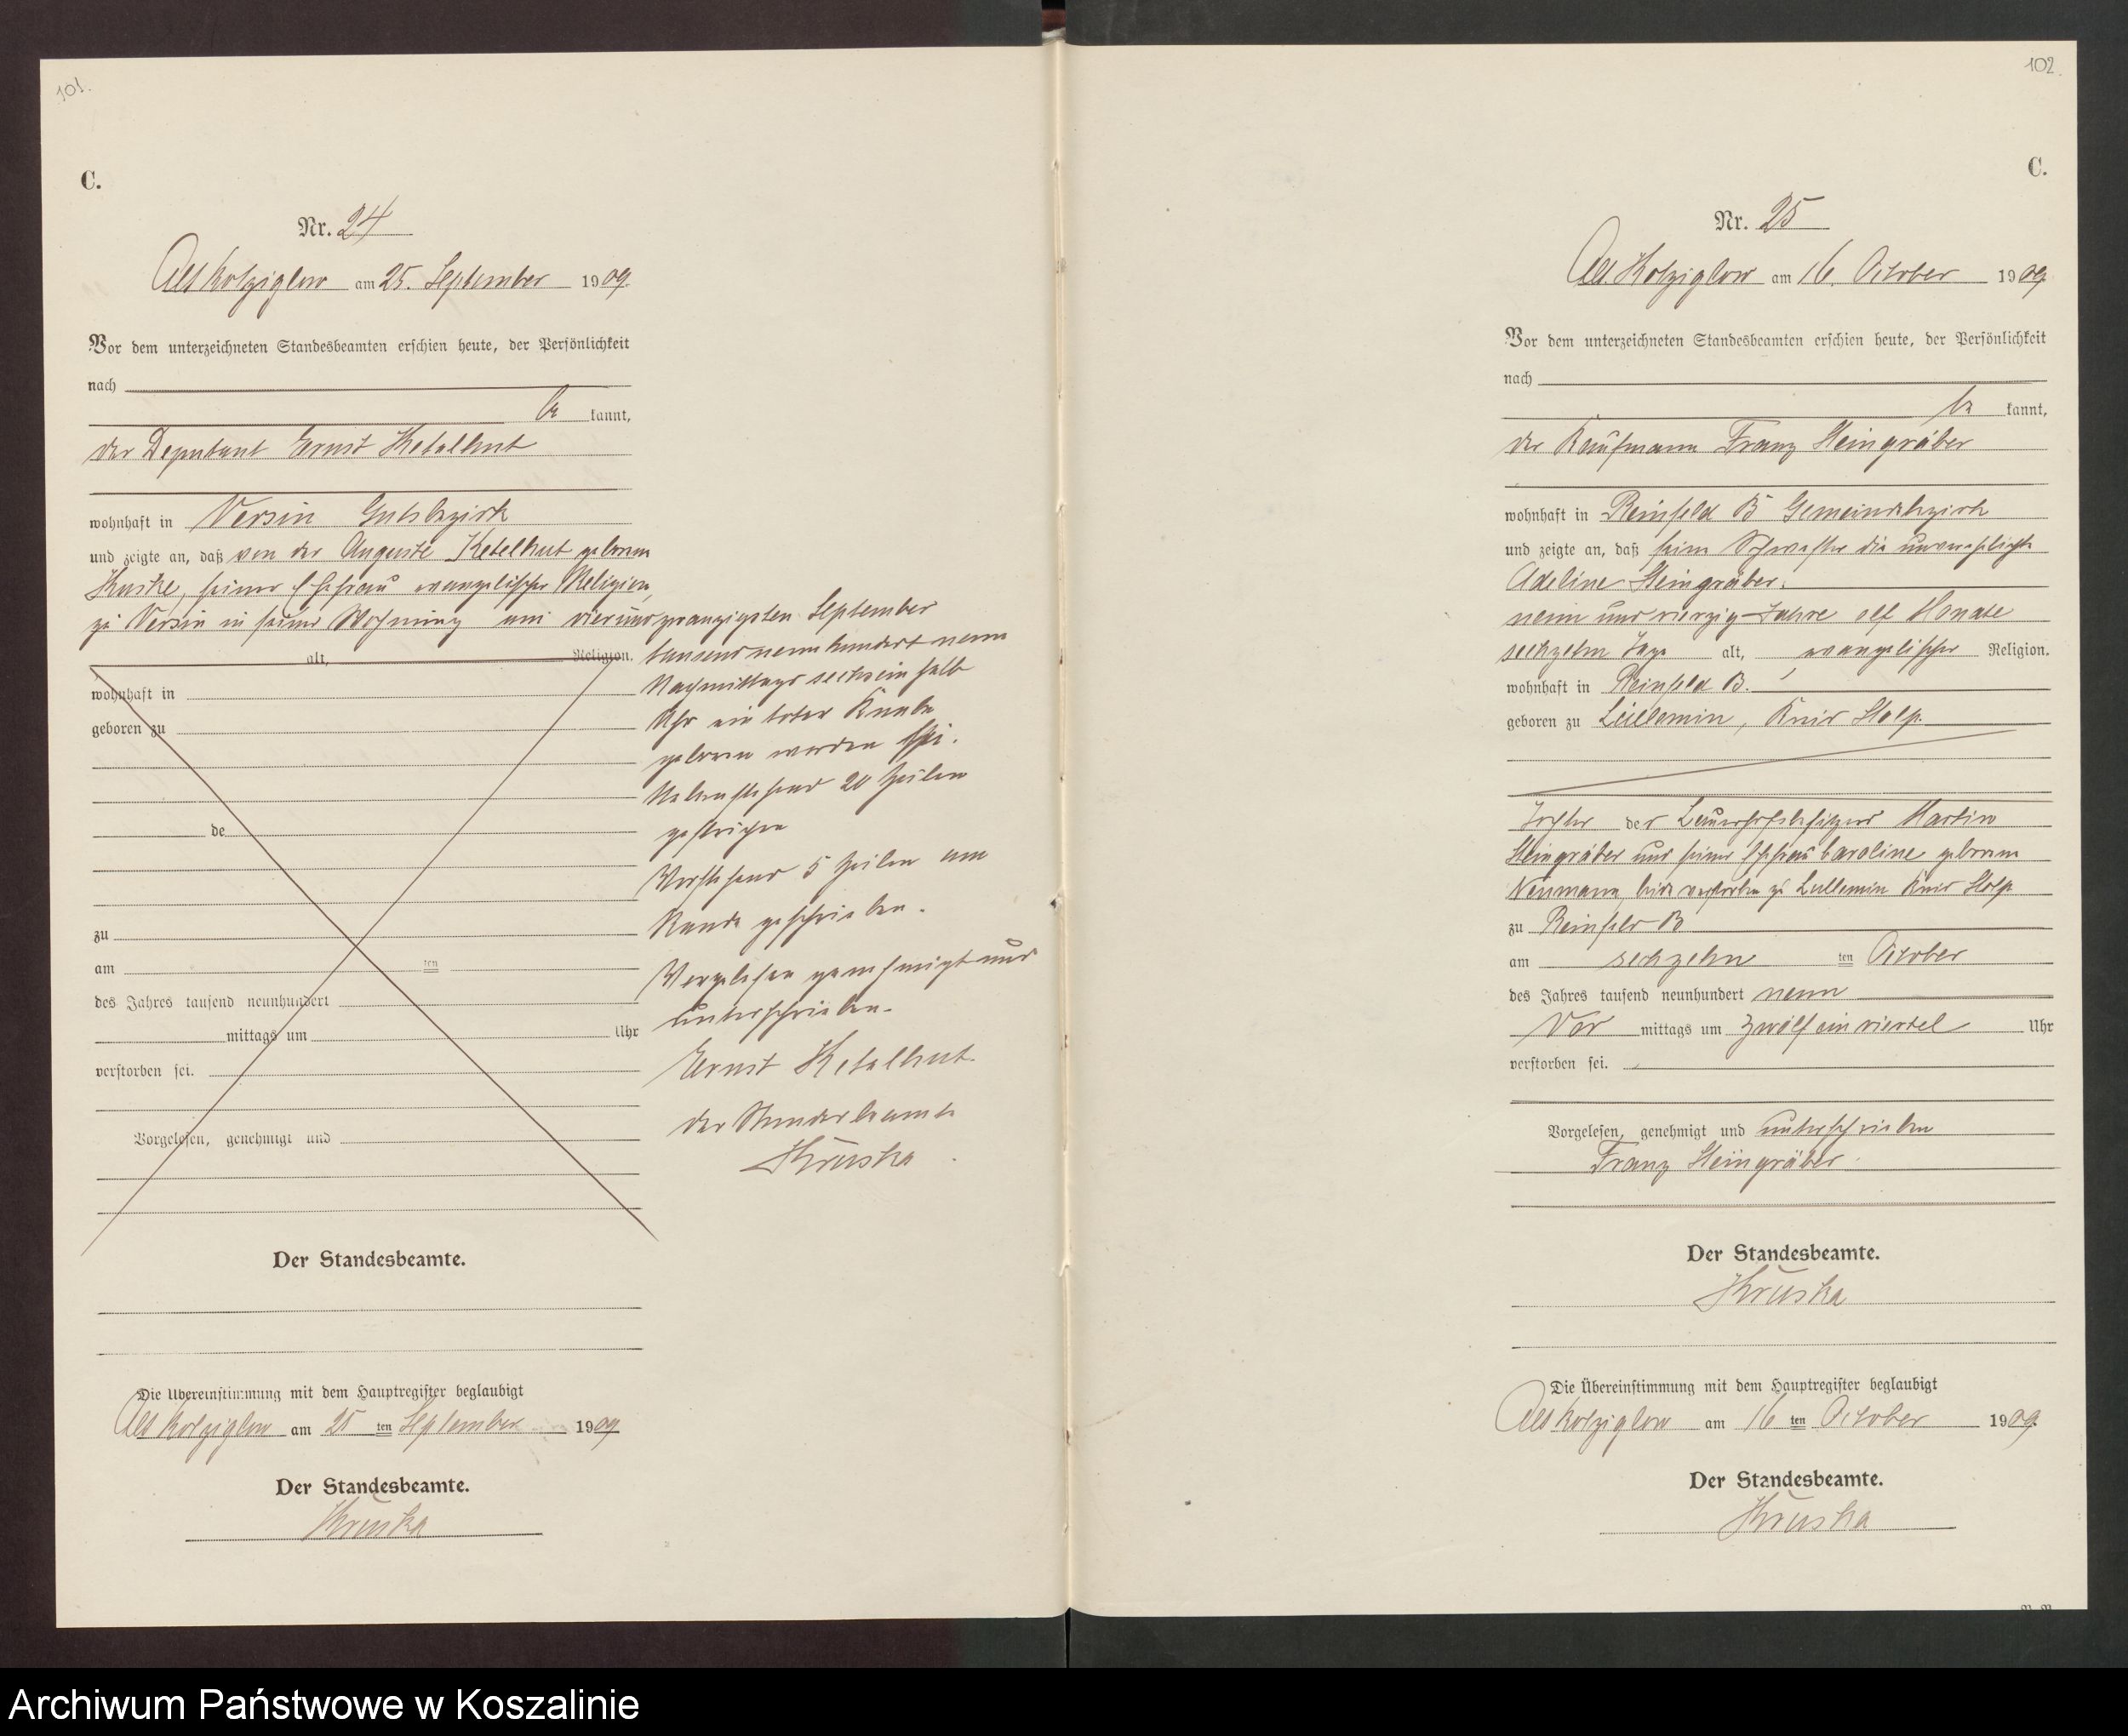 101.
C.
Nr. 24
Alt Kolziglow am 25. September 1909.
Vor dem unterzeichneten Standesbeamten erschien heute, der Persönlichkeit
nach
be kannt,
der Deputant Ernst Ketelhut
wohnhaft in Versin Gutsbezirk
und zeigte an, daß von der Auguste Ketelhut geborene
Kuske, seiner Ehefrau evangelischer Religion,
zu Versin in seiner Wohnung am vierundzwanzigsten September
alt, Religion. tausendneunhundert neun
wohnhaft in Nachmittags sechseinhalb
geboren zu Uhr ein toter Knabe
geboren worden sei.
Nebenstehend 20 Zeilen
de gestrichen
Vorstehend 5 Zeilen am
Rande geschrieben.
zu
am ten Vorgelesen genehmigt und
des Jahres tausend neunhundert unterschrieben.
mittags um Uhr
verstorben sei. Ernst Ketelhut.
Vorgelesen, genehmigt und der Standesbeamte
Kruska
Der Standesbeamte.
Die Übereinstimmung mit dem Hauptregister beglaubigt
Alt Kolziglow am 25 ten September 1909
Der Standesbeamte.
Kruska
102.
C.
Nr. 25
Alt. Kolziglow am 16. October 1909.
Vor dem unterzeichneten Standesbeamten erschien heute, der Persönlichkeit
nach
be kannt,
der Kaufmann Franz Steingräber
wohnhaft in Reinfeld B Gemeindebezirk
und zeigte an, daß seine Schwester die unverehelichte
Adeline Steingräber,
neun und vierzig Jahre elf Monate
sechzehn Tage alt, evangelischer Religion.
wohnhaft in Reinfeld B.
geboren zu Lüllemin, Kreis Stolp.
Tochter des Bauerhofsbesitzers Martin
Steingräber und seiner Ehefrau Caroline geborene
Neumann, beide verstorben zu Lüllemin Kreis Stolp
zu Reinfeld B
am sechzehn ten October
des Jahres tausend neunhundert neun
Vor mittags um zwölf ein viertel Uhr
verstorben sei.
Vorgelesen, genehmigt und unterschrieben
Franz Steingräber.
Der Standesbeamte.
Kruska
Die Übereinstimmung mit dem Hauptregister beglaubigt
Alt Kolziglow am 16 ten October 1909.
Der Standesbeamte.
Kruska
Archiwum Państwowe w Koszalinie